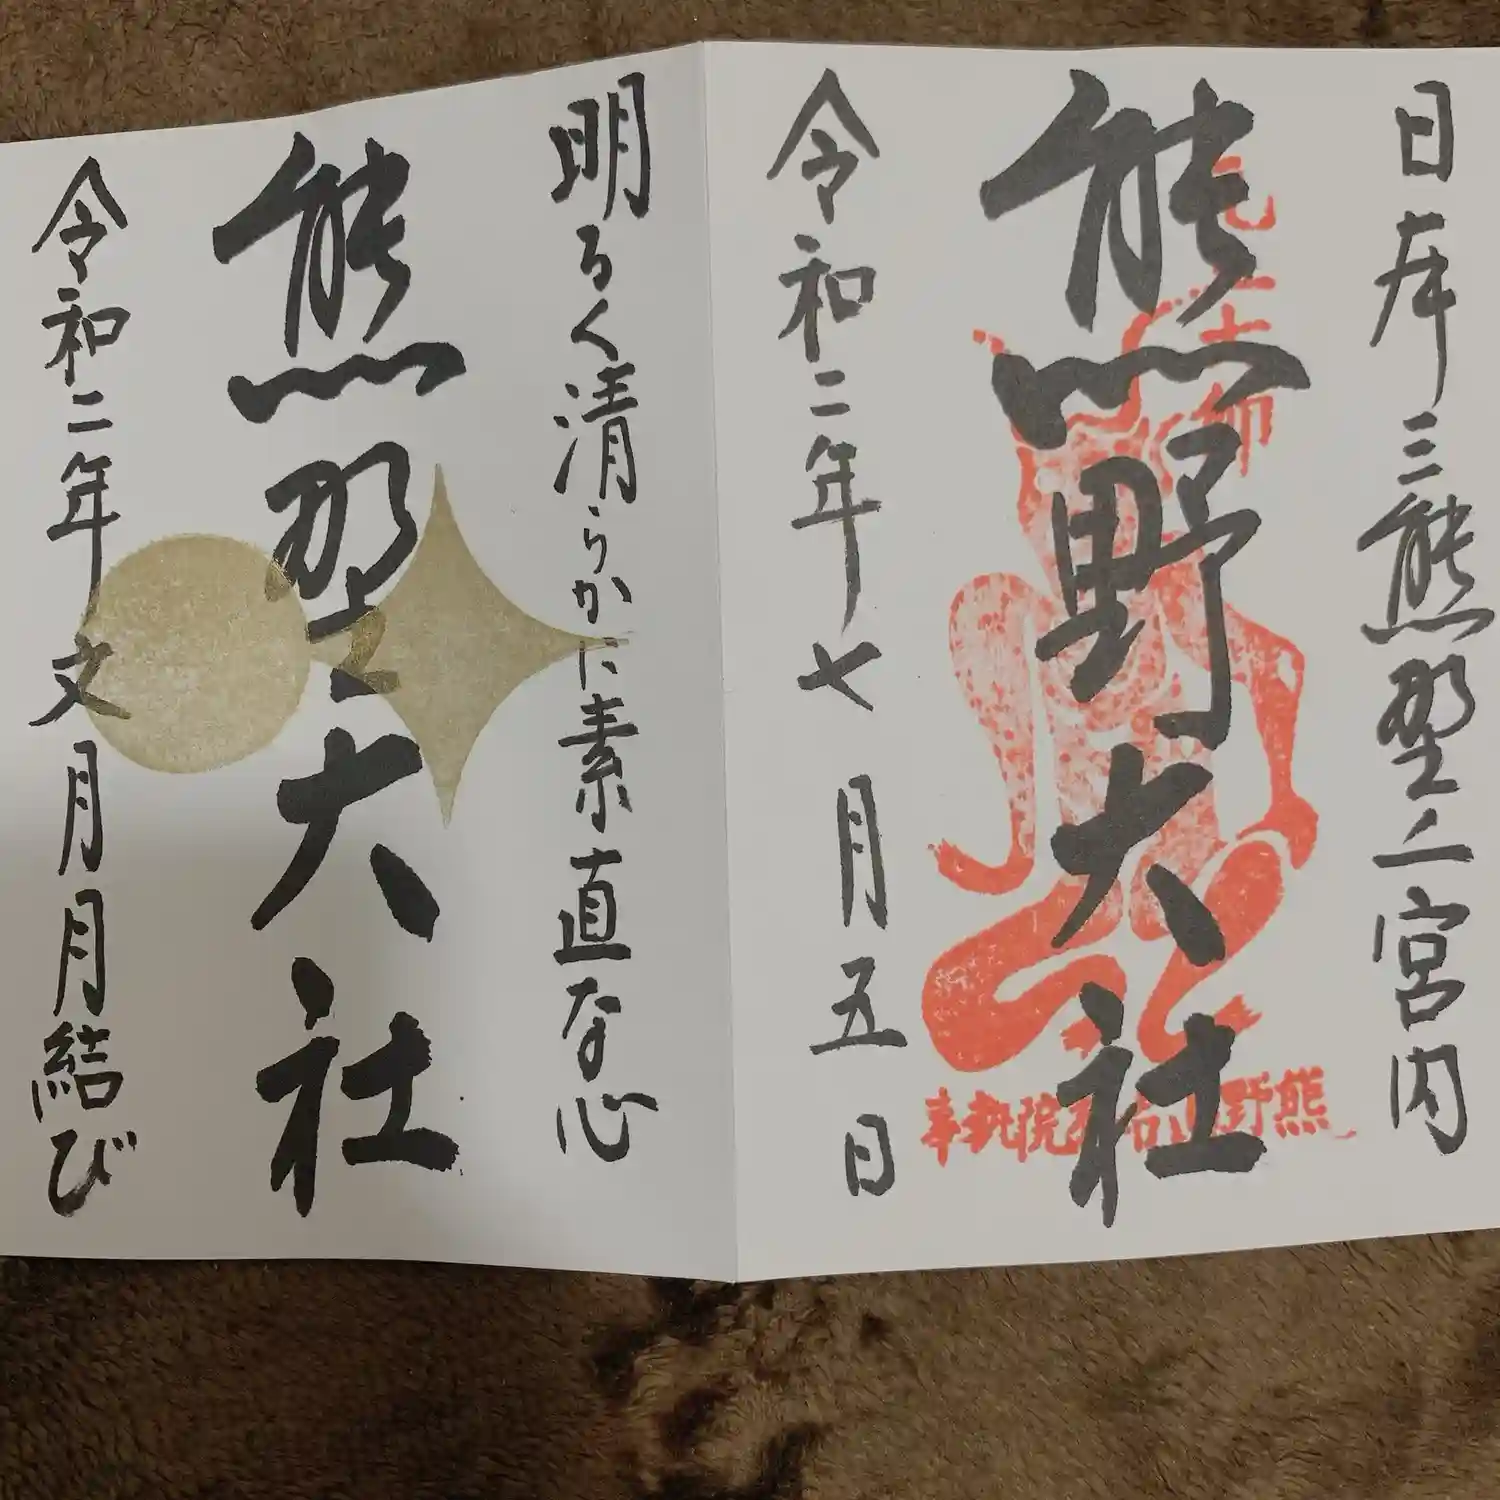 日本三熊野上宮内
熊野大社
令和二年七月五日
熊野
院執事
明るく清らかに素直な心
熊埜大社
令和二年文月月結び